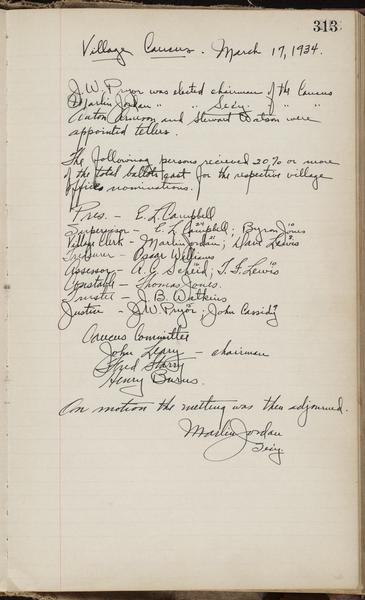 313
Village Caucus. March 17, 1934.
J. W. Pryor was elected chairman of the Caucus
Martin Jordan " " Secy. " " "
Anton Arneson and Stewart Watson were
appointed tellers.
The following persons received 20% or more
of the total ballots cast for the respective village
offices nominations.
Pres. – E. L. Campbell
Supervisor – E. L. Campbell; Byron Jones
Village Clerk – Martin Jordan; Dave Lewis
Treasurer – Oscar Williams
Assessor – A. C. Scheid; T. G. Lewis
Constable – Thomas Jones.
Trustee – J. B. Watkins
Justice – J. W. Pryor; John Cassidy
Caucus Committee
John Leary – chairman
Fred Starry
Henry Burns.
On motion the meeting was then adjourned.
Martin Jordan
Secy.